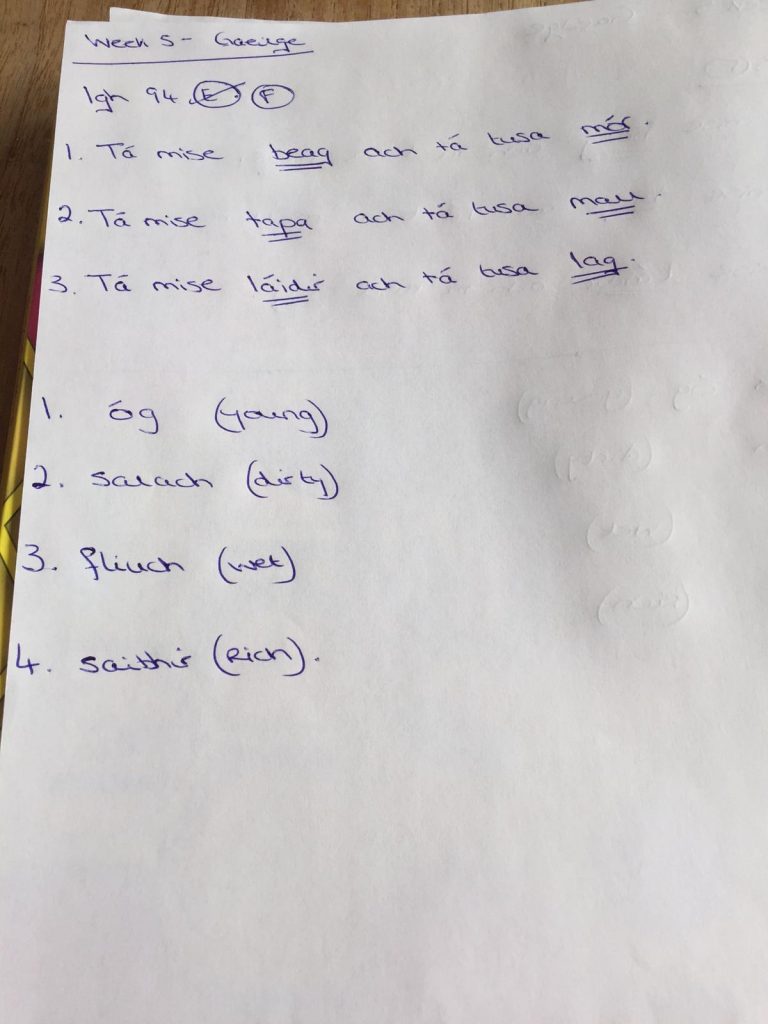 Week 5 - Gaeilge
lgh 94. E F
1. Tá mise beag ach tá tusa mór.
2. Tá mise tapa ach tá tusa mall.
3. Tá mise láidir ach tá tusa lag.
1. óg (young)
2. salach (dirty)
3. fliuch (wet)
4. saibhir (Rich).